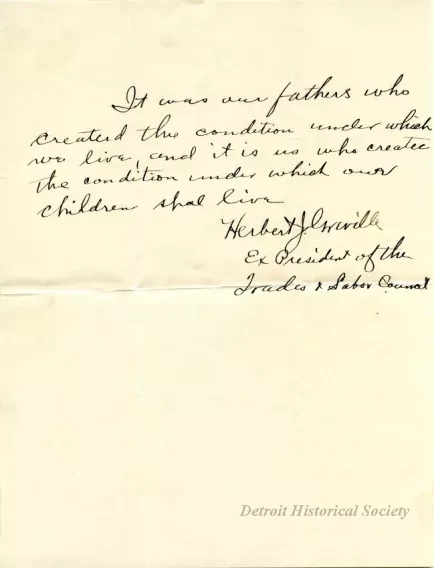 It was our fathers who
createrd the condition under which
we live, and it is us who create
the condition under which our
children shal live
Herbert J.
Ex President of the
Trades & Labor Council
Detroit Historical Society